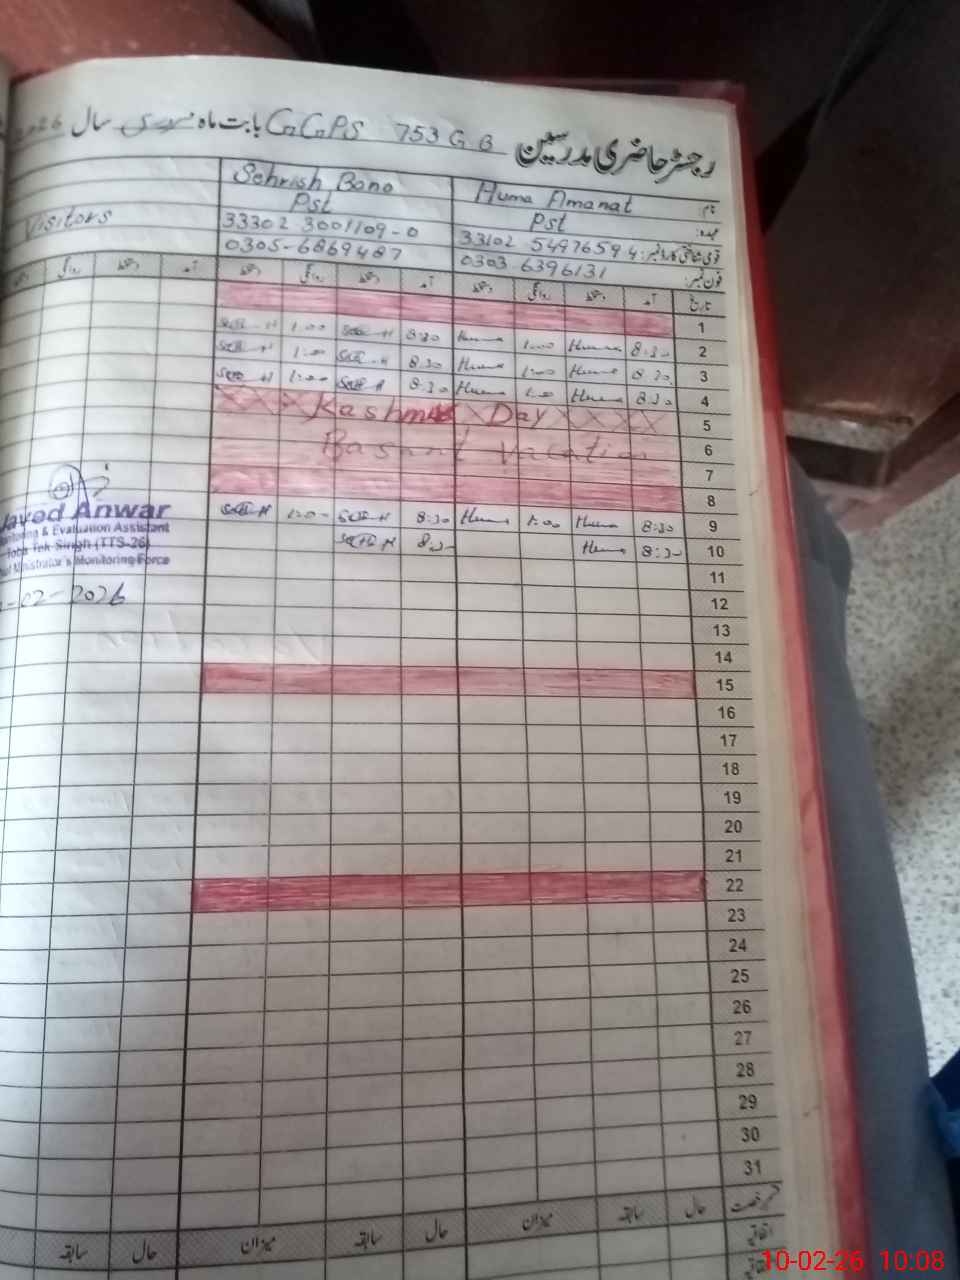 رجسٹر حاضری مدرسین GGPS 753 GB بابت ماہ فروری سال 2026
نام: Huma Amanat Sehrish Bano
عہدہ: Pst Pst
قومی شناختی کارڈ نمبر: 33102 5497659 4 33302 3001109-0 Visitors
فون نمبر: 0303 6396131 0305-6869487
تاریخ آمد دستخط روانگی دستخط آمد دستخط روانگی دستخط آمد دستخط روانگی
1
2 8:30 Huma 1:00 Huma 8:30 1:00
3 8:30 Huma 1:00 Huma 8:30 1:00
4 8:30 Huma 1:00 Huma 8:30 1:00
5 Kashmir Day
6 Basant Vacation
7
8
9 8:30 Huma 1:00 Huma 8:30 1:00
10 8:30 Huma
11
12
13
14
15
16
17
18
19
20
21
22
23
24
25
26
27
28
29
30
31
Javed Anwar
Monitoring & Evaluation Assistant
Toba Tek Singh (TTS-26)
Chief Minister's Monitoring Force
-02-2026
حال سابقہ میزان حال سابقہ میزان حال سابقہ
اتفاقیہ
10-02-26 10:08